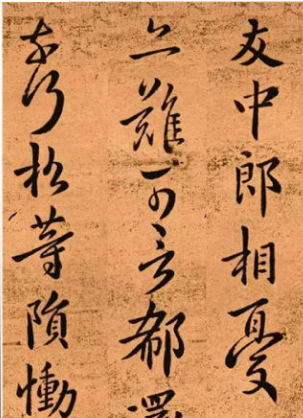 友中郎相憂
亦難可言郗還
松等隕慟